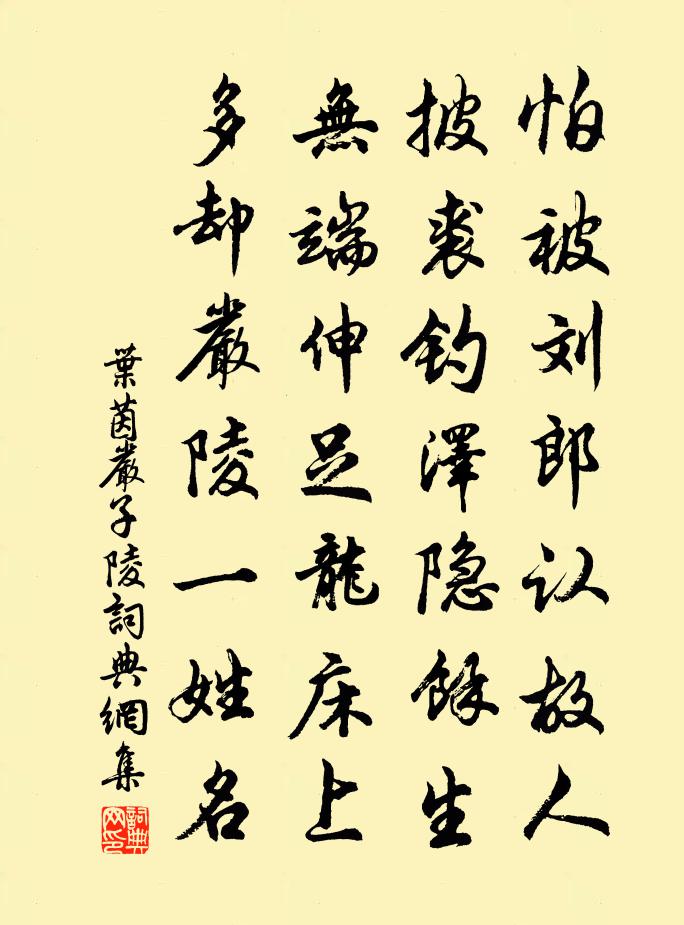 怕被刘郎认故人
披裘钓澤隐餘生
無端伸足龍床上
多却嚴陵一姓名
葉茵嚴子陵詞典網集
詞典網印